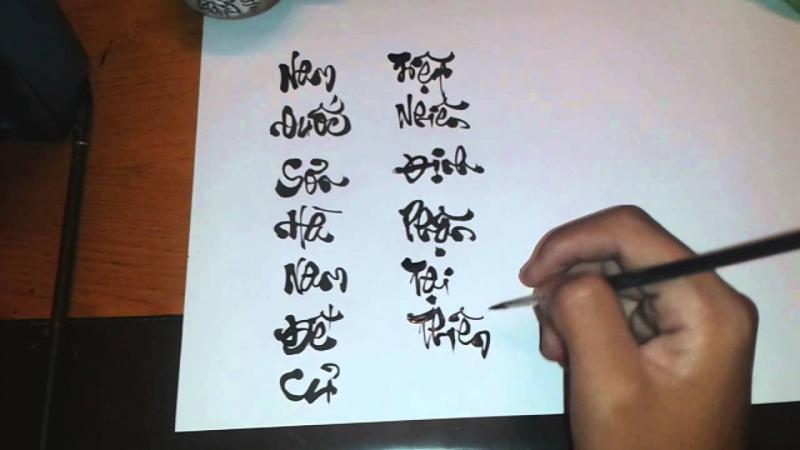 Nam
Quốc
Sơn
Hà
Nam
Đế
Cư
Tiệt
Nhiên
Định
Phận
Tại
Thiên